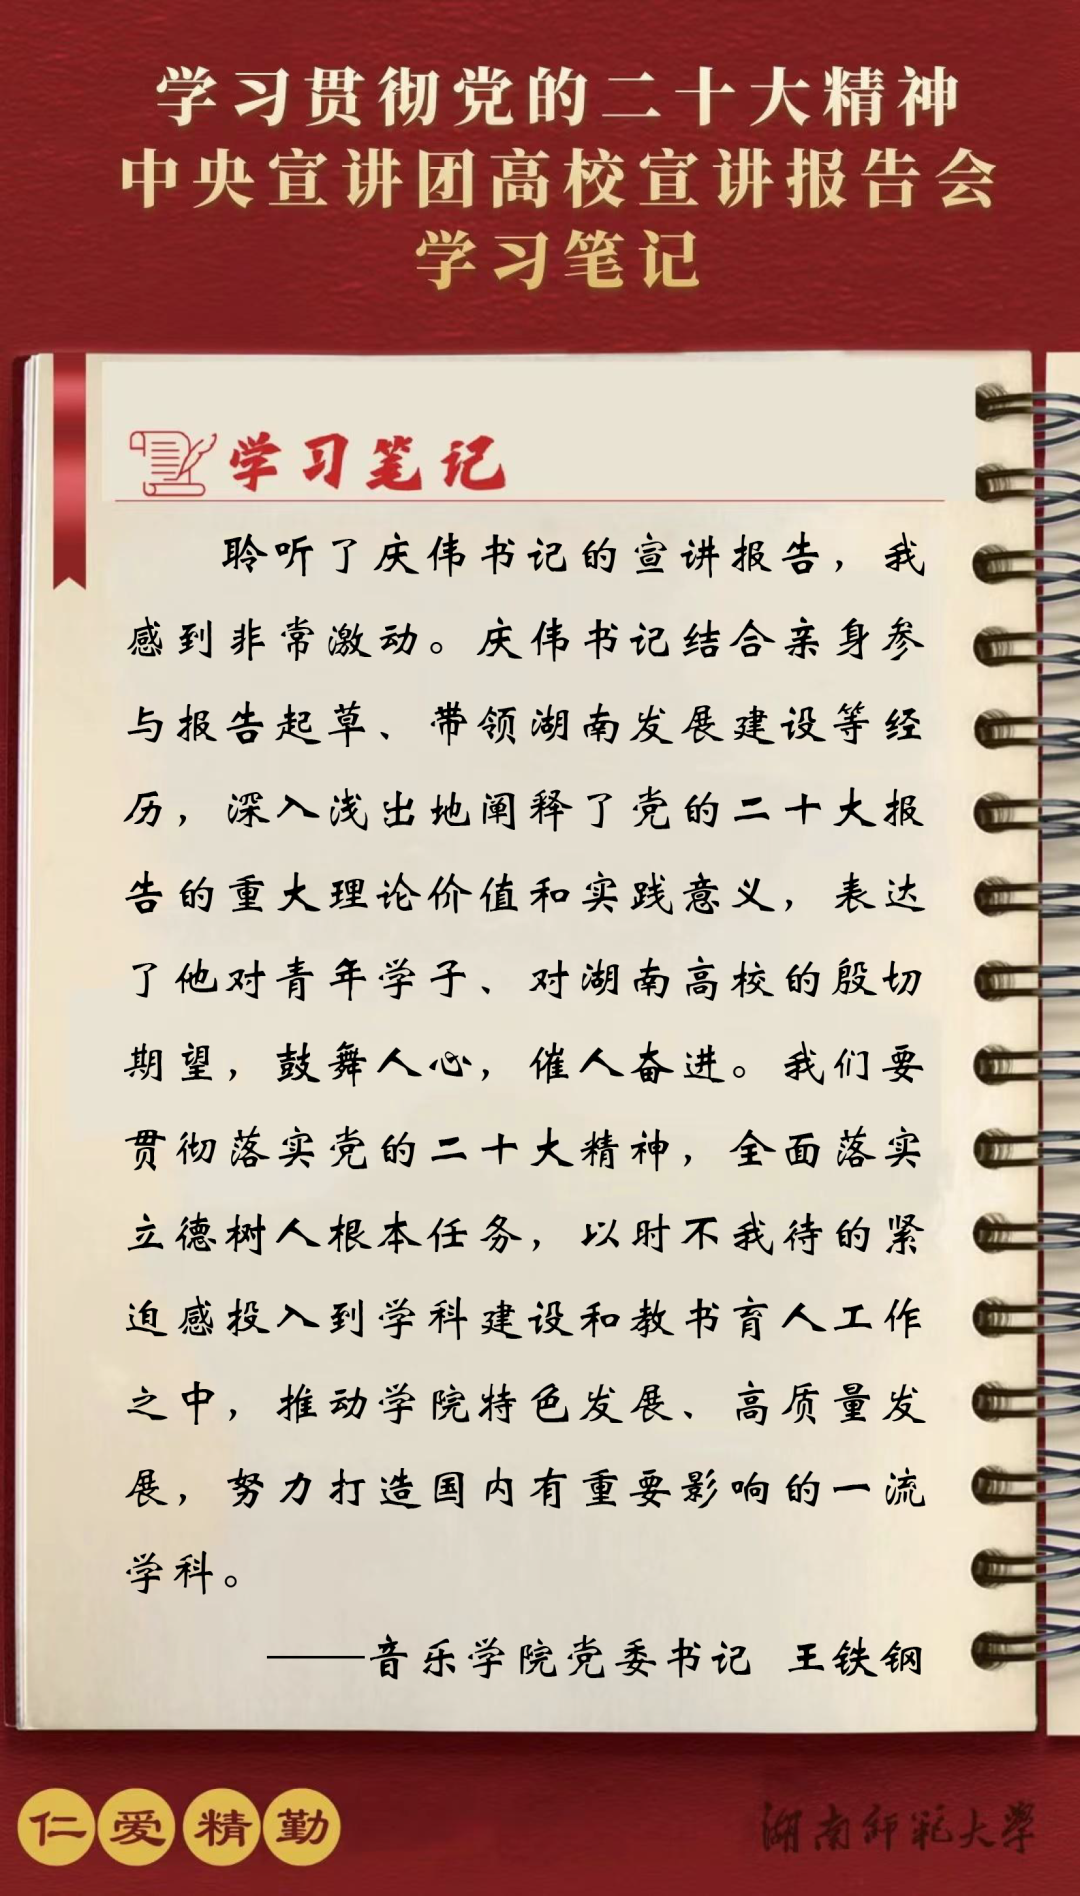 学习贯彻党的二十大精神
中央宣讲团高校宣讲报告会
学习笔记
学习笔记
聆听了庆伟书记的宣讲报告，我
感到非常激动。庆伟书记结合亲身参
与报告起草、带领湖南发展建设等经
历，深入浅出地阐释了党的二十大报
告的重大理论价值和实践意义，表达
了他对青年学子、对湖南高校的殷切
期望，鼓舞人心，催人奋进。我们要
贯彻落实党的二十大精神，全面落实
立德树人根本任务，以时不我待的紧
迫感投入到学科建设和教书育人工作
之中，推动学院特色发展、高质量发
展，努力打造国内有重要影响的一流
学科。
——音乐学院党委书记 王铁钢
仁爱精勤
湖南师范大学